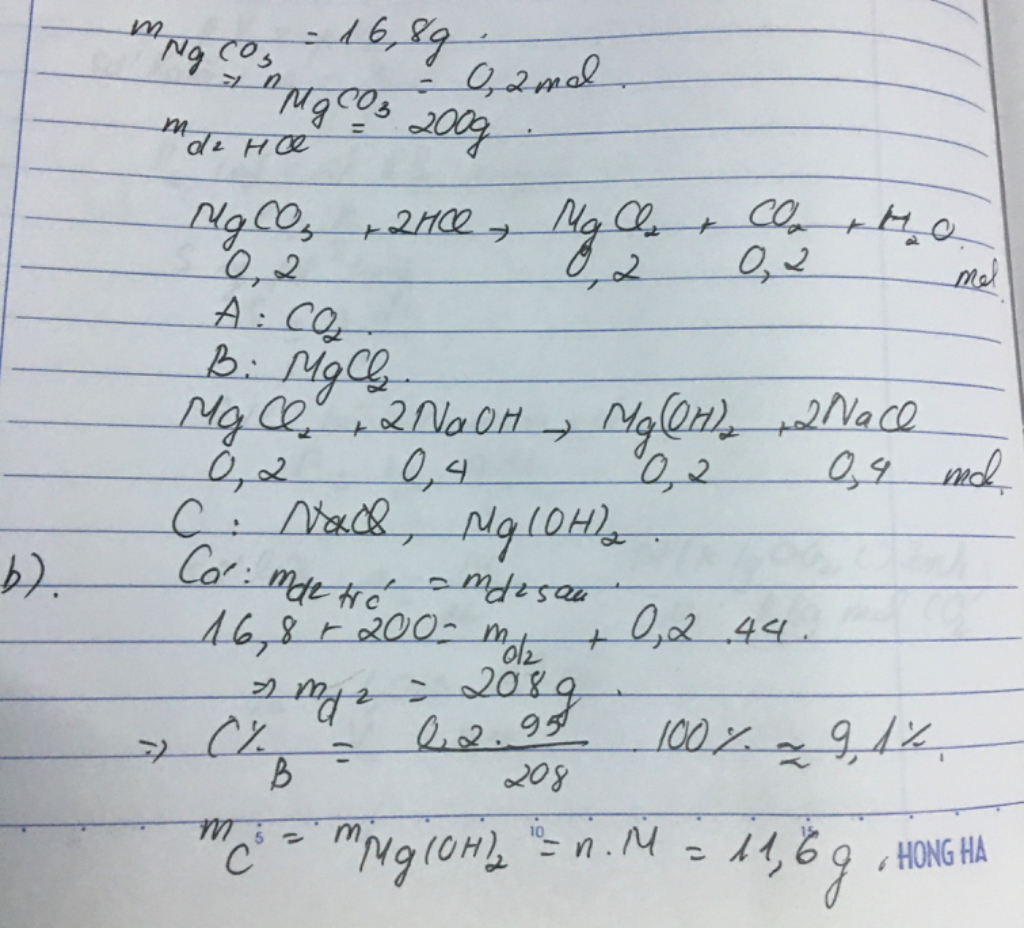 m MgCO₃ = 16,8g.
=> n MgCO₃ = 0,2 mol.
m d² HCl = 200g.
MgCO₃ + 2HCl → MgCl₂ + CO₂ + H₂O.
0,2 0,2 0,2 mol.
A: CO₂.
B: MgCl₂.
MgCl₂ + 2NaOH → Mg(OH)₂ + 2NaCl
0,2 0,4 0,2 0,4 mol.
C: NaCl, Mg(OH)₂.
b). Có: m d² trc = m d² sau.
16,8 + 200 = m d² + 0,2 . 44.
=> m d² = 208g.
=> C% B = 0,2 . 95 / 208 . 100% ≈ 9,1%.
m C = m Mg(OH)₂ = n.M = 11,6g.
5 10 15 HONG HA